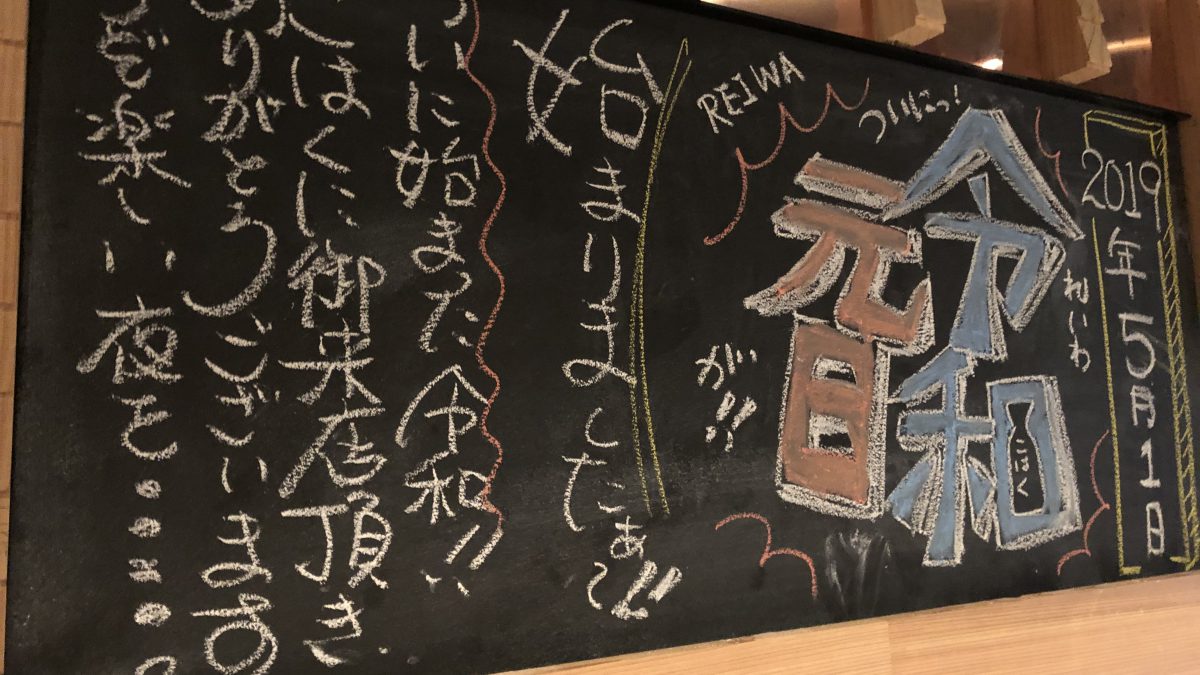 2019年5月1日
れいわ
令和
こはく
ついにっ!
元日
REIWA
が!!
始まりましたぁ〜!!
いに始まった令和!!
はくに御来店頂き
りがとうございます
楽しい夜を・・・